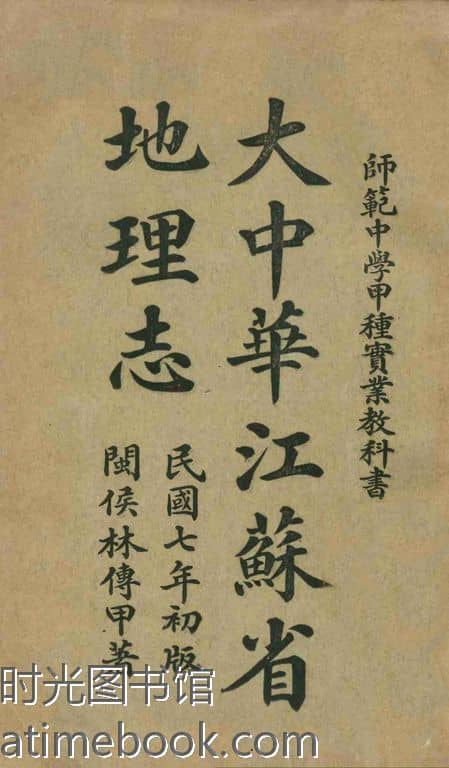 師範中學甲種實業教科書
大中華江蘇省
地理志
民國七年初版
閩侯林傳甲著
时光图书馆
atimebook.com